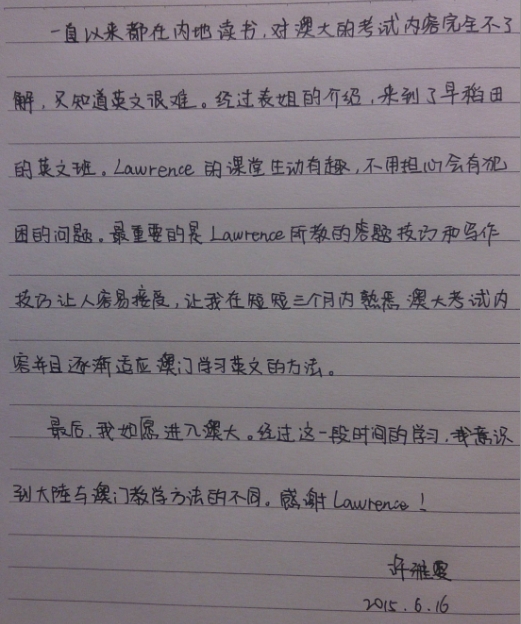 一直以来都在内地读书，对澳大的考试内容完全不了
解，又知道英文很难。经过表姐的介绍，来到了早稻田
的英文班。Lawrence 的课堂生动有趣，不用担心会有犯
困的问题。最重要的是Lawrence所教的答题技巧和写作
技巧让人容易接受，让我在短短三个月内熟悉澳大考试内
容并且逐渐适应澳门学习英文的方法。
最后，我如愿进入澳大。经过这一段时间的学习，我意识
到大陆与澳门教学方法的不同。感谢Lawrence！
许雅雯
2015.6.16